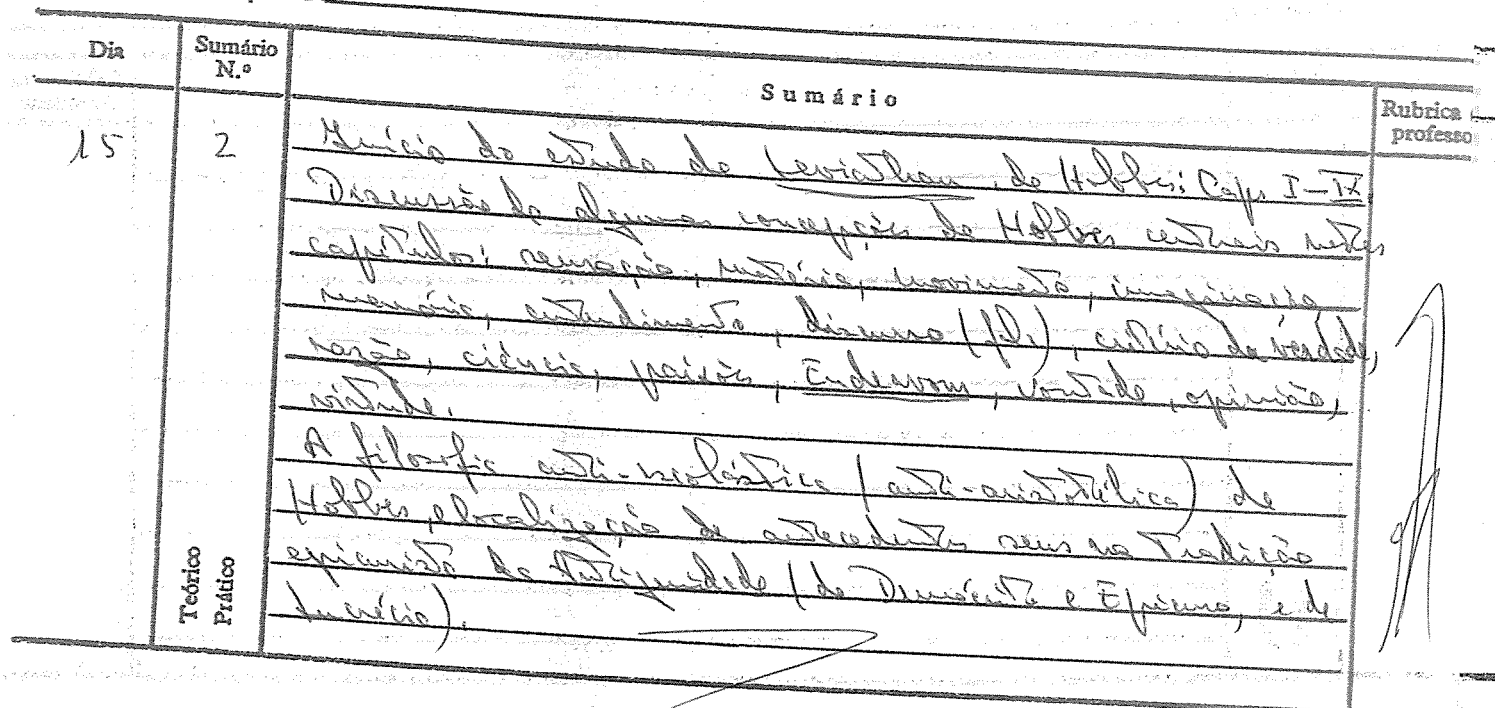 Dia
Sumário
N.º
Sumário
Rubrica
professo
15
2
Início do estudo do Leviathan, de Hobbes: Caps I-IX
Discussão de algumas concepções de Hobbes centrais nestes
capítulos: sensação, matéria, movimento, imaginação
memória, entendimento, discurso, critério da verdade,
razão, ciência, paixões, Endeavour, vontade, opinião,
virtude.
A filosofia anti-escolástica (anti-aristotélica) de
Hobbes, e localização de antecedentes seus na tradição
epicurista da Antiguidade (de Demócrito e Epicuro, e de
Lucrécio).
Teórico
Prático